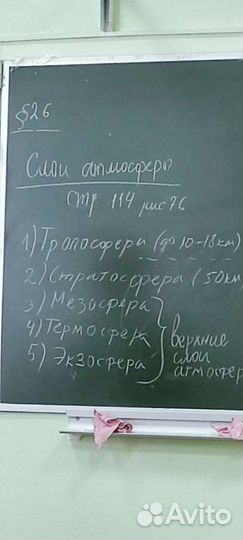 §26
Слои атмосферы
стр 114 рис 76
1) Тропосфера (до 10-18км)
2) Стратосфера (50км
3) Мезосфера
4) Термосфера
5) Экзосфера
верхние
слои
атмосфер
Avito